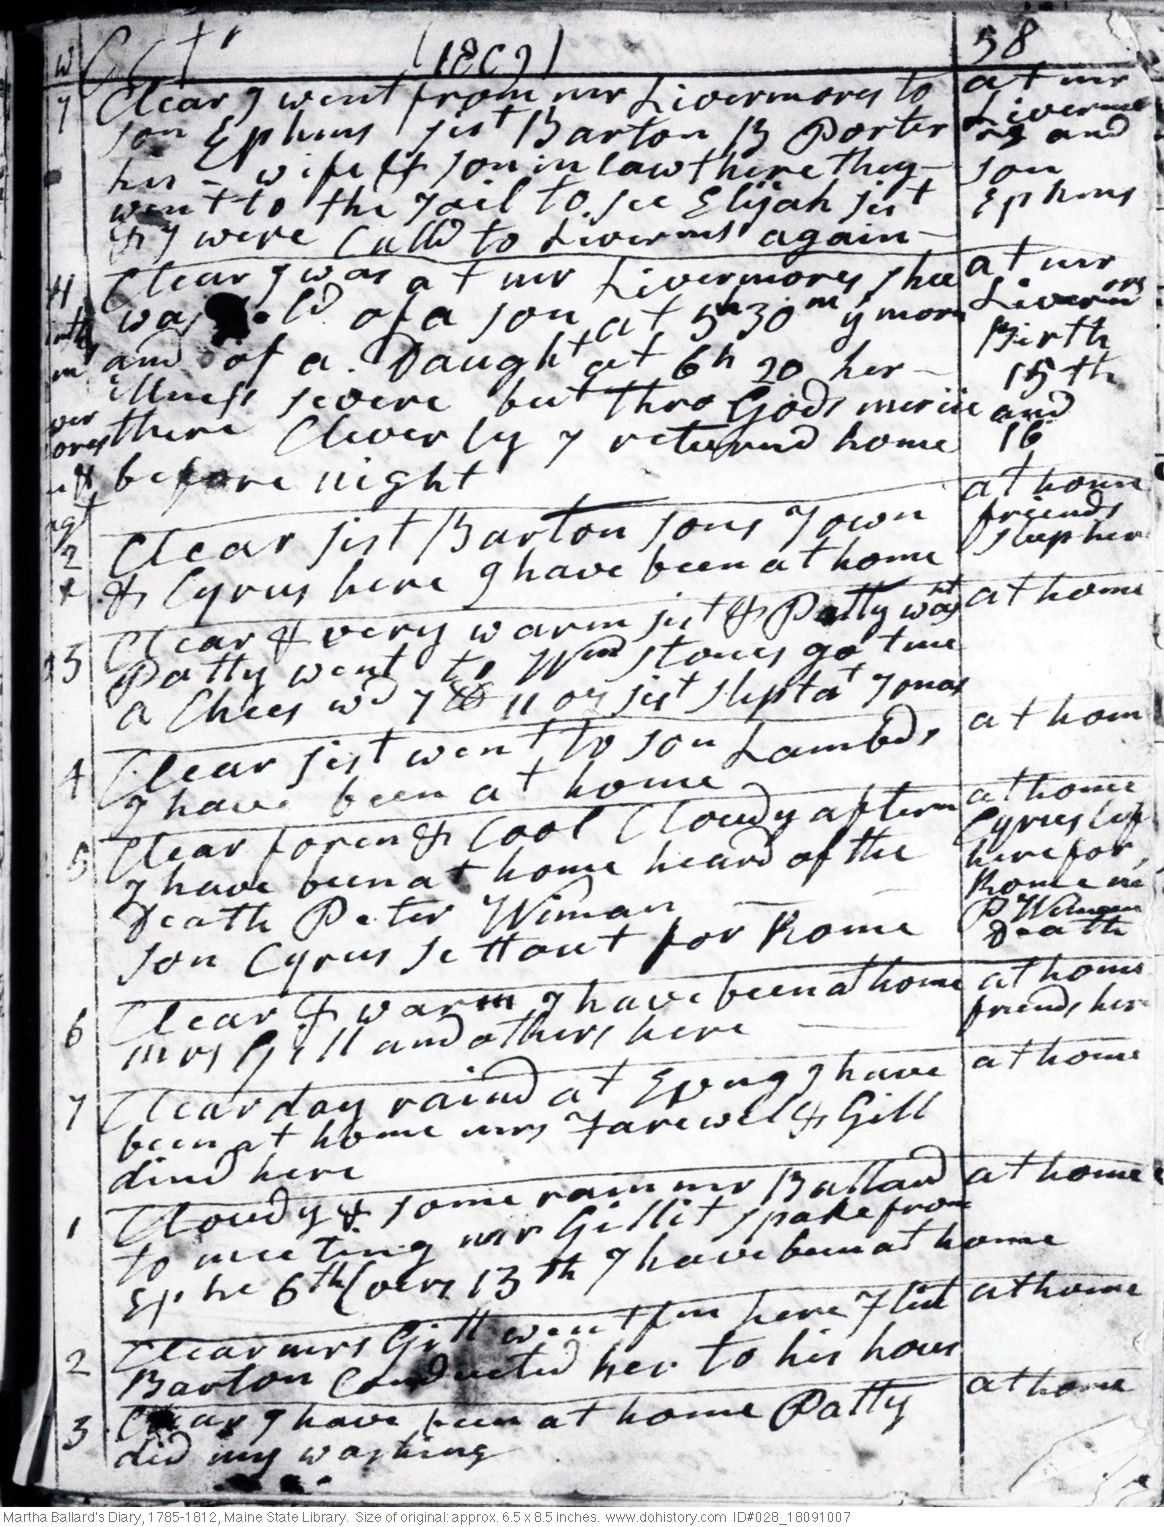 Oct r (1809) 58
7 Clear I went from mr Livermores to at mr
son Ephms sist Barton B Porter Livermo
his - wife & son in law there they - rs and
went to the Jail to see Elijah sist son
& I were Calld to Livermrs again - Ephms
Clear I was at mr Livermores shee at mr
was ld of a son at 5h 30m y morn Livermores
and of a Daught at 6h 20 her - Birth
illness severe but thro Gods mercie 15th
there Cleverly I returnd home and
before night 16
2 Clear sist Barton sons Town at home
& Cyrus here I have been at home friends
sleep here
3 Clear & very warm sist & Patty wast at home
Patty went to Wm Stones got me
a Chees wd 7 lb 11 oz sist slept at Jonas
4 Clear sist went to son Lambds at hom
I have been at home
5 Clear foren & Cool Cloudy aftern at home
I have been at home heard of the Cyrus lef
Death Peter Wiman here for
son Cyrus settout for Rome Rome
P Wiman
Death
6 Clear & warm I have been at home at home
mrs Gill and others here friends her
7 Clear day raind at Evng I have at home
been at home mrs Farewel & Gill
dind here
1 Cloudy & some rain mr Ballard at home
to meeting mr Gillit spake from
Ephe 6th Cvers 13th I have been at home
2 Clear mrs Gill went fm here at home
Barton Conducted her to his hous
3 Clear I have been at home Patty at home
did my washing
Martha Ballard's Diary, 1785-1812, Maine State Library. Size of original: approx. 6.5 x 8.5 inches. www.dohistory.com ID#028_18091007